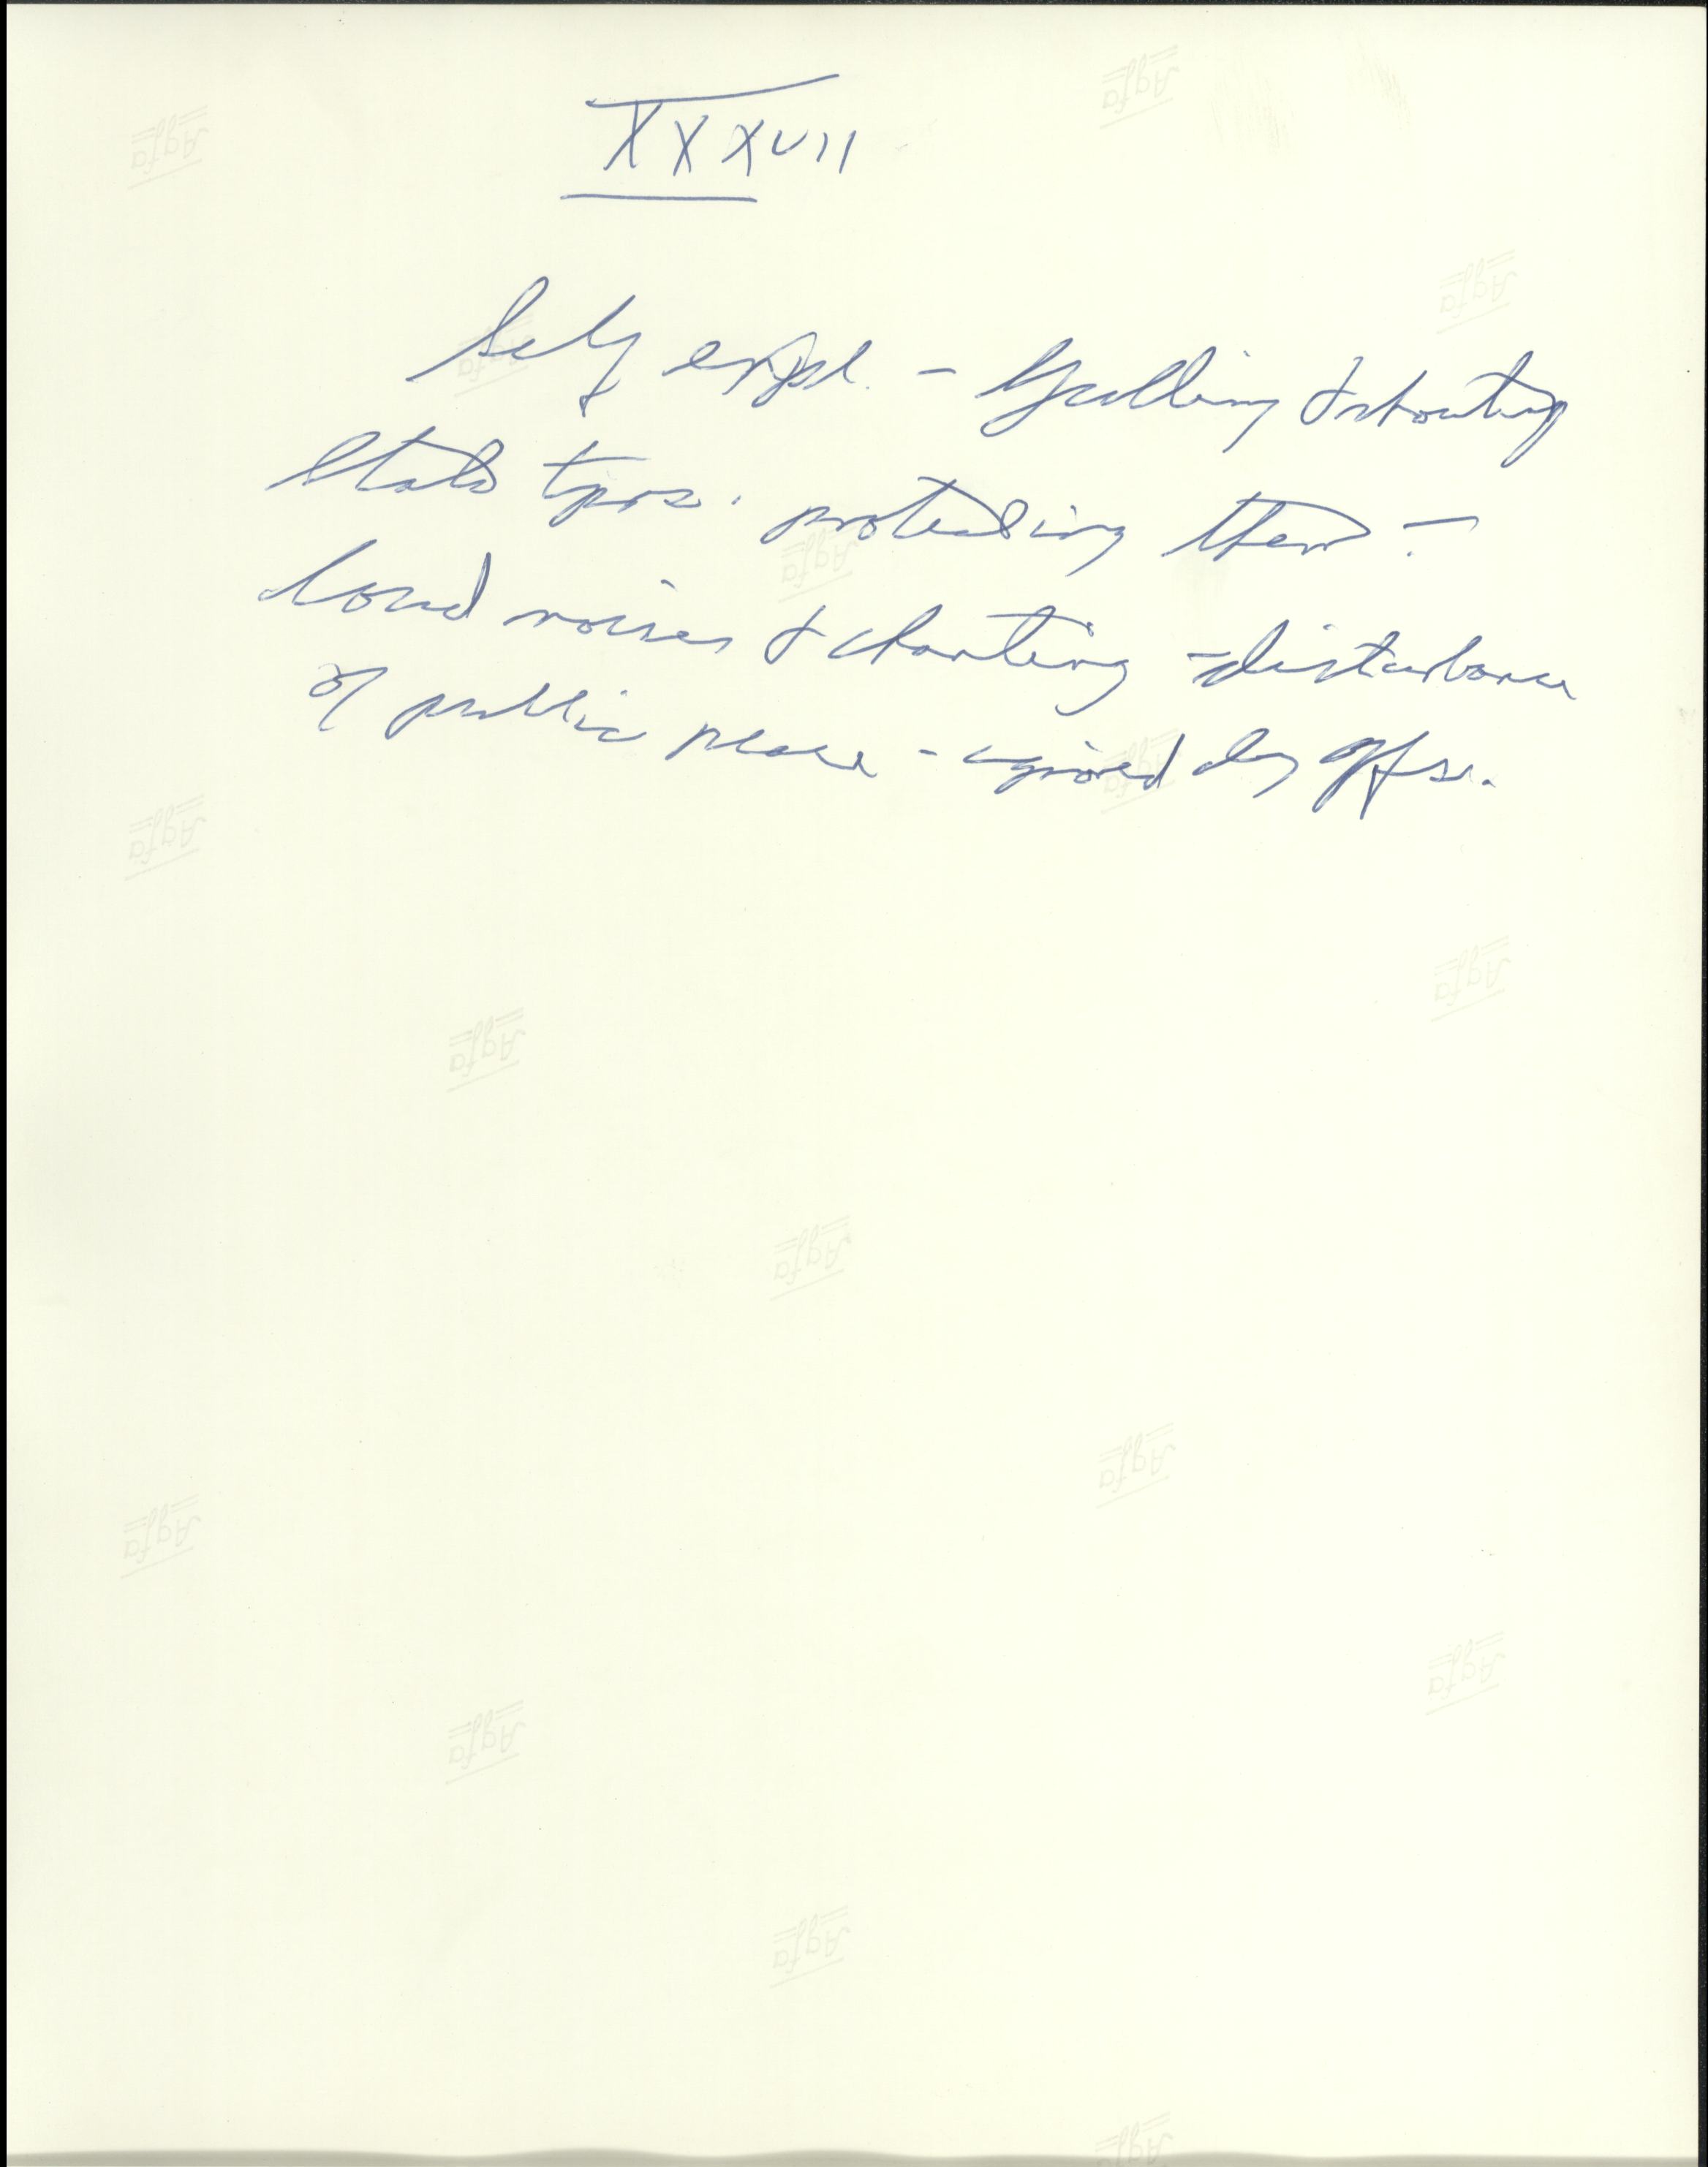 XXXVII
Self expl. - Yelling & shouting
State tprs. protecting them -
loud noises & chanting - disturbance
of public peace - ignored by offsr.
Agfa